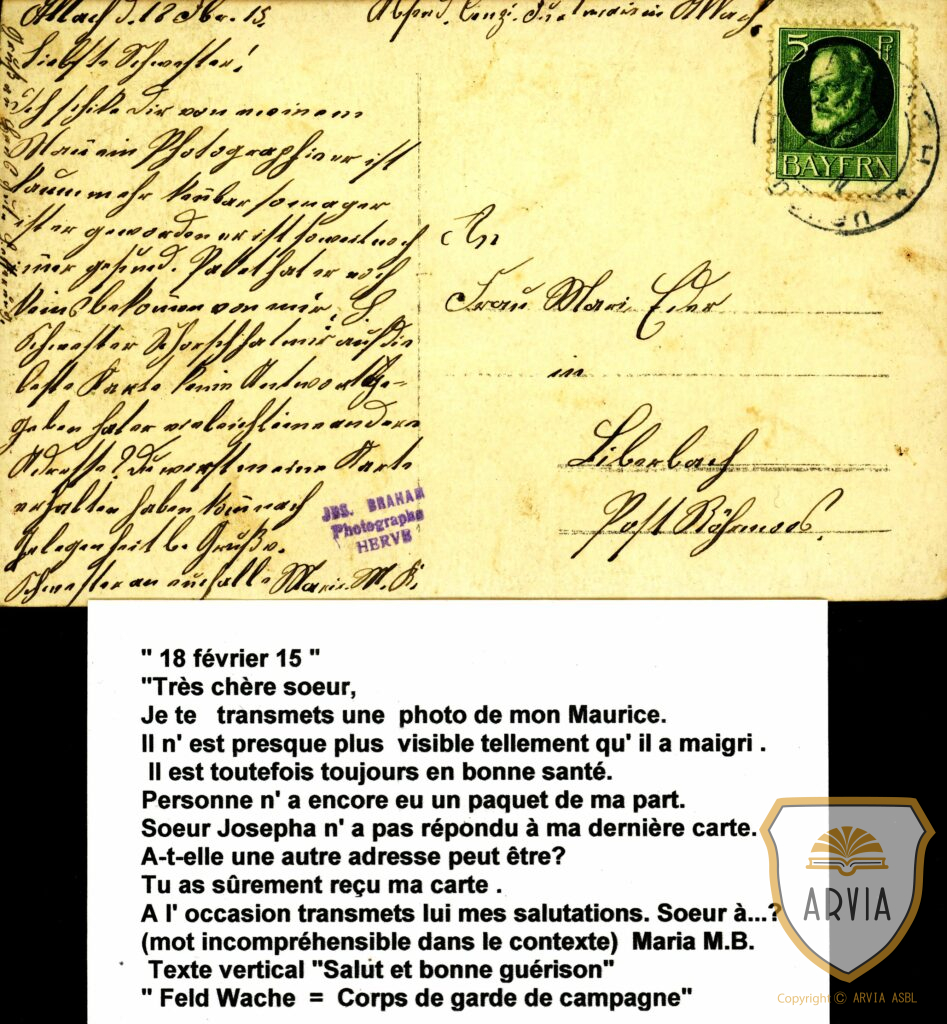 Allach d. 18 Fbr. 15.
Absend. Cenzi. in Allach
Liebste Schwester!
Ich schike dir von meinem
Mann ein Photographie er ist
kaum mehr kenbar so mager
ist er geworden er ist soweit noch
imer gesund. Paket hat er noch
keins bekomen von mir. L.
Schwester Schorsch hat mir auf die
leste Karte keine Antwort ge-
geben hat er vieleicht eine andere
Adresse? Du wirst meine Karte
erhalten haben kom nach
Gelegenheit b. Gruß v.
Schwester an euch alle Marie. M. K.
5 Pf
BAYERN
An
Frau Mari Eder
in
Biberbach
Post Röhrmoos.
JOS. BRAHAM
Photographe
HERVE
" 18 février 15 "
"Très chère soeur,
Je te transmets une photo de mon Maurice.
Il n' est presque plus visible tellement qu' il a maigri .
Il est toutefois toujours en bonne santé.
Personne n' a encore eu un paquet de ma part.
Soeur Josepha n' a pas répondu à ma dernière carte.
A-t-elle une autre adresse peut être?
Tu as sûrement reçu ma carte .
A l' occasion transmets lui mes salutations. Soeur à...?
(mot incompréhensible dans le contexte) Maria M.B.
Texte vertical "Salut et bonne guérison"
" Feld Wache = Corps de garde de campagne"
ARVIA
Copyright © ARVIA ASBL